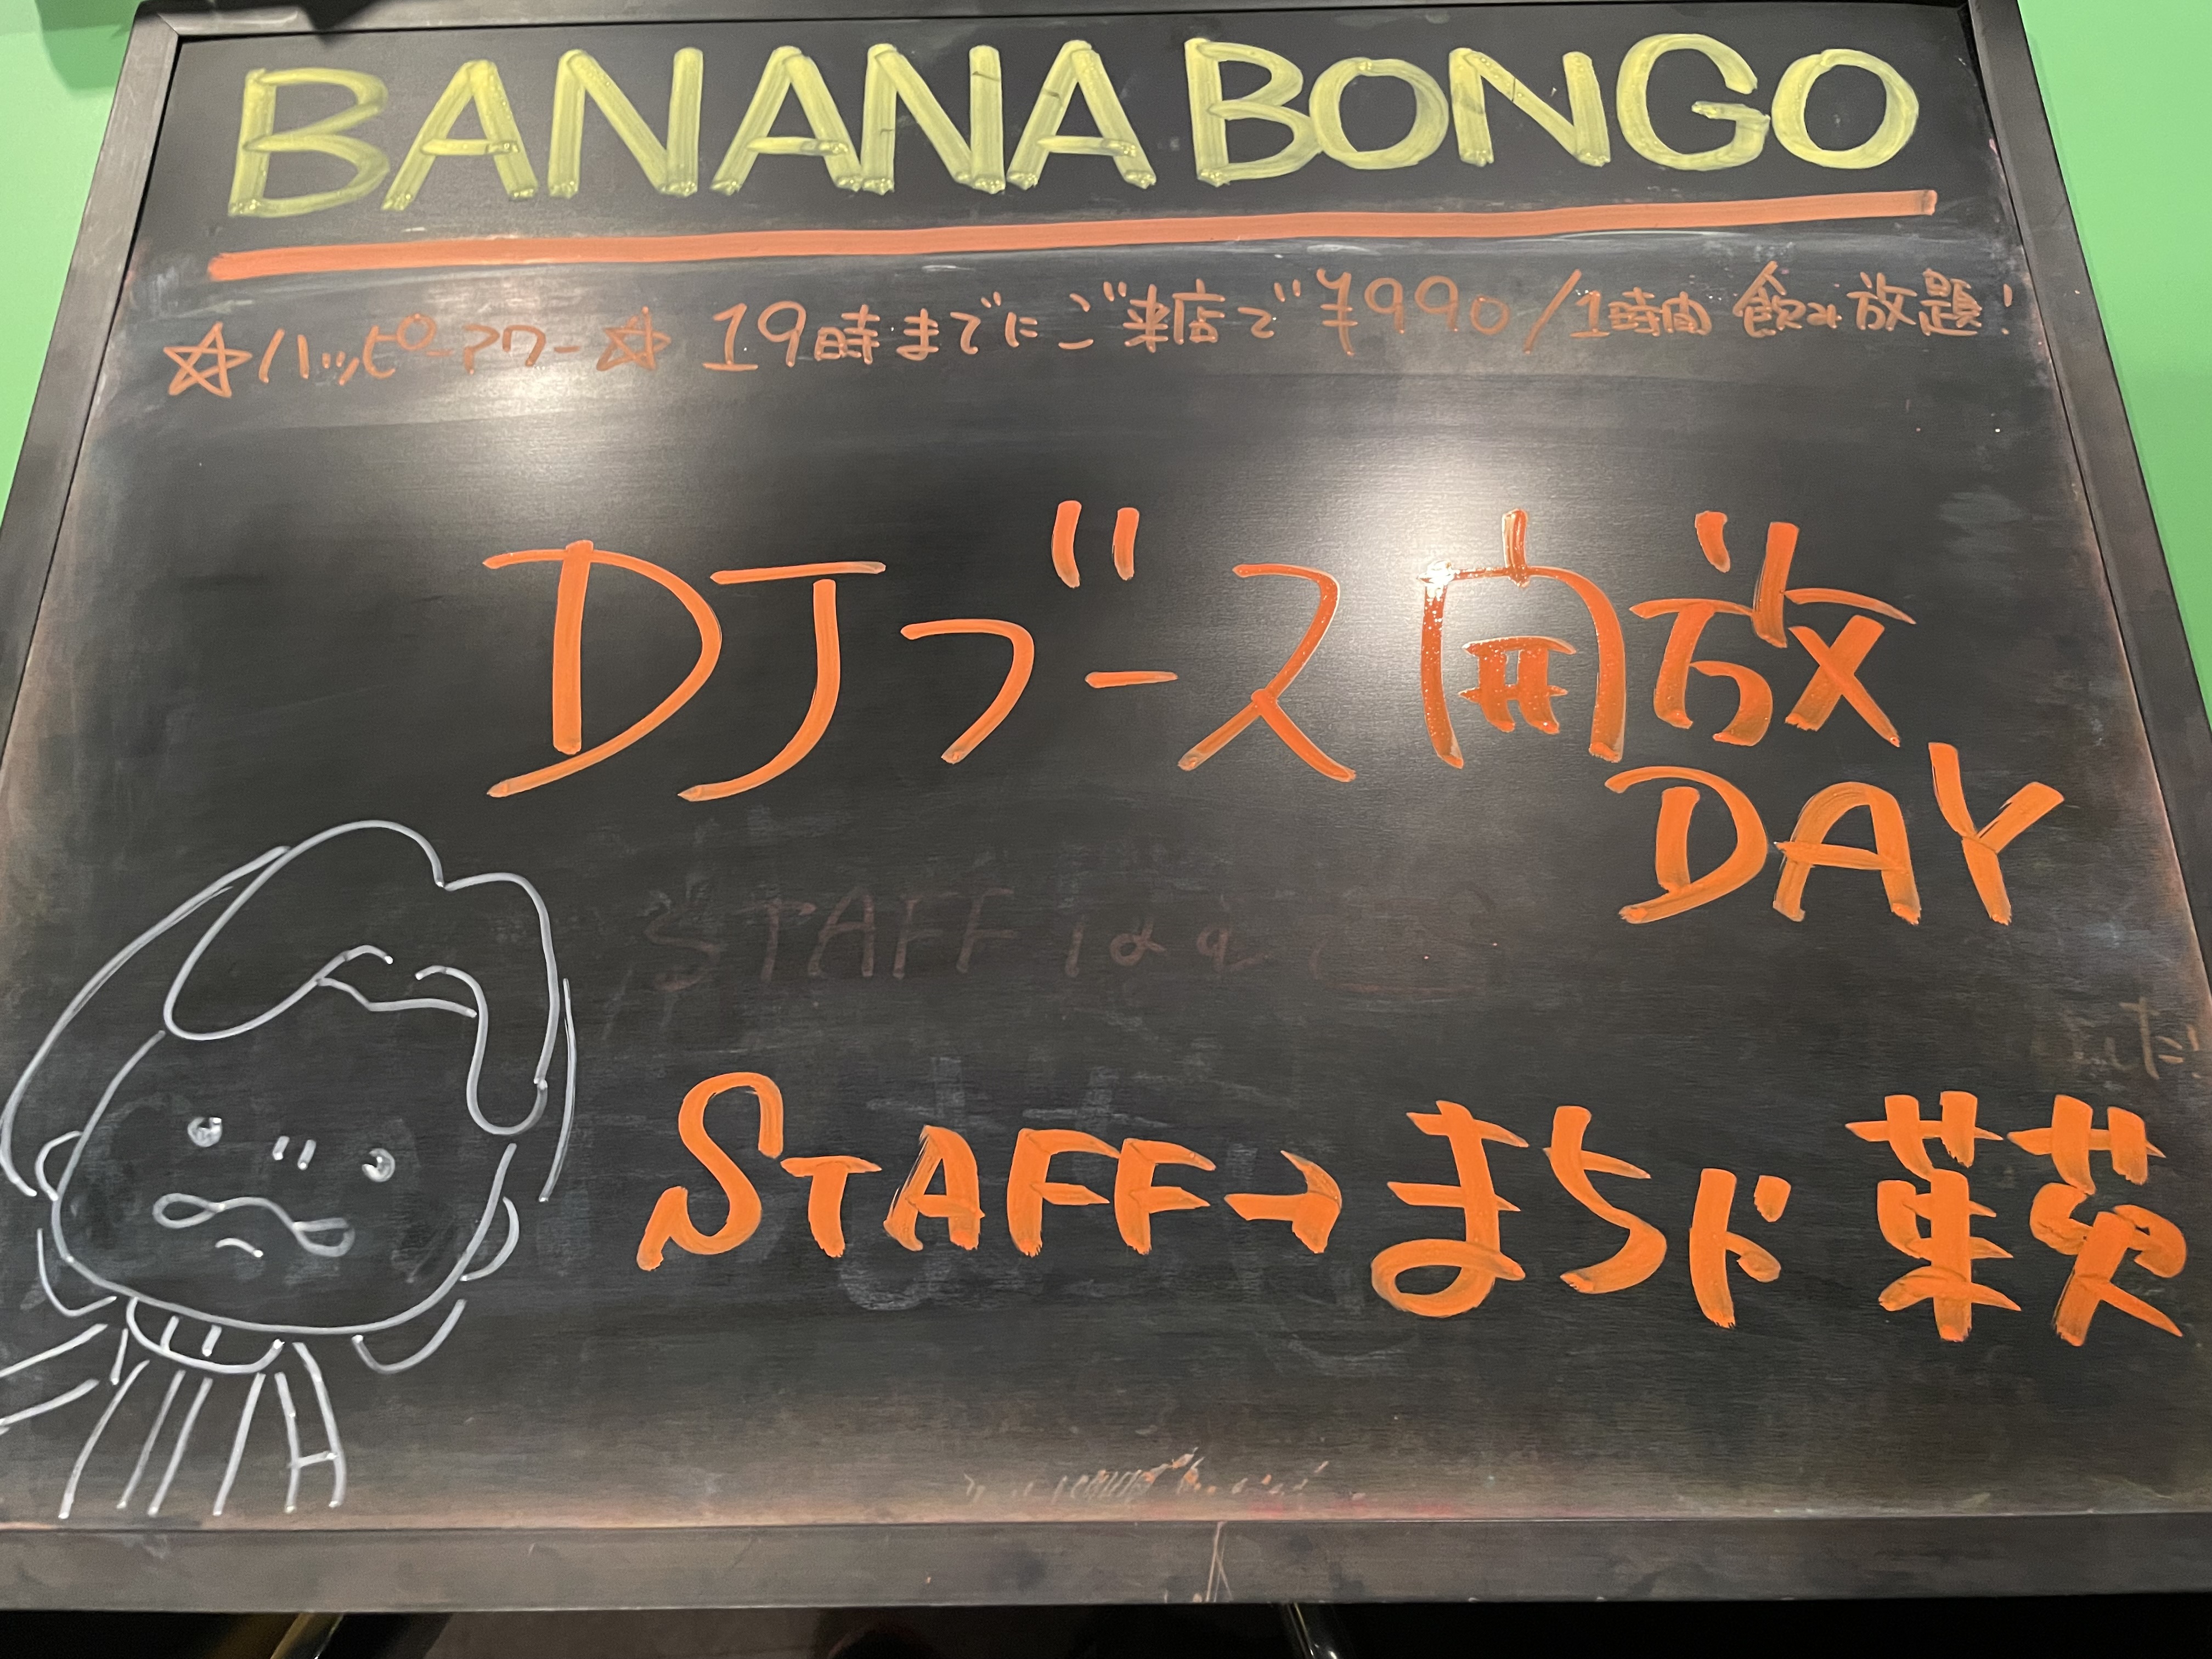 BANANA BONGO
☆ハッピーアワー☆ 19時までにご来店で¥990/1時間 飲み放題!
DJブース開放
DAY
STAFF
STAFF→まちド